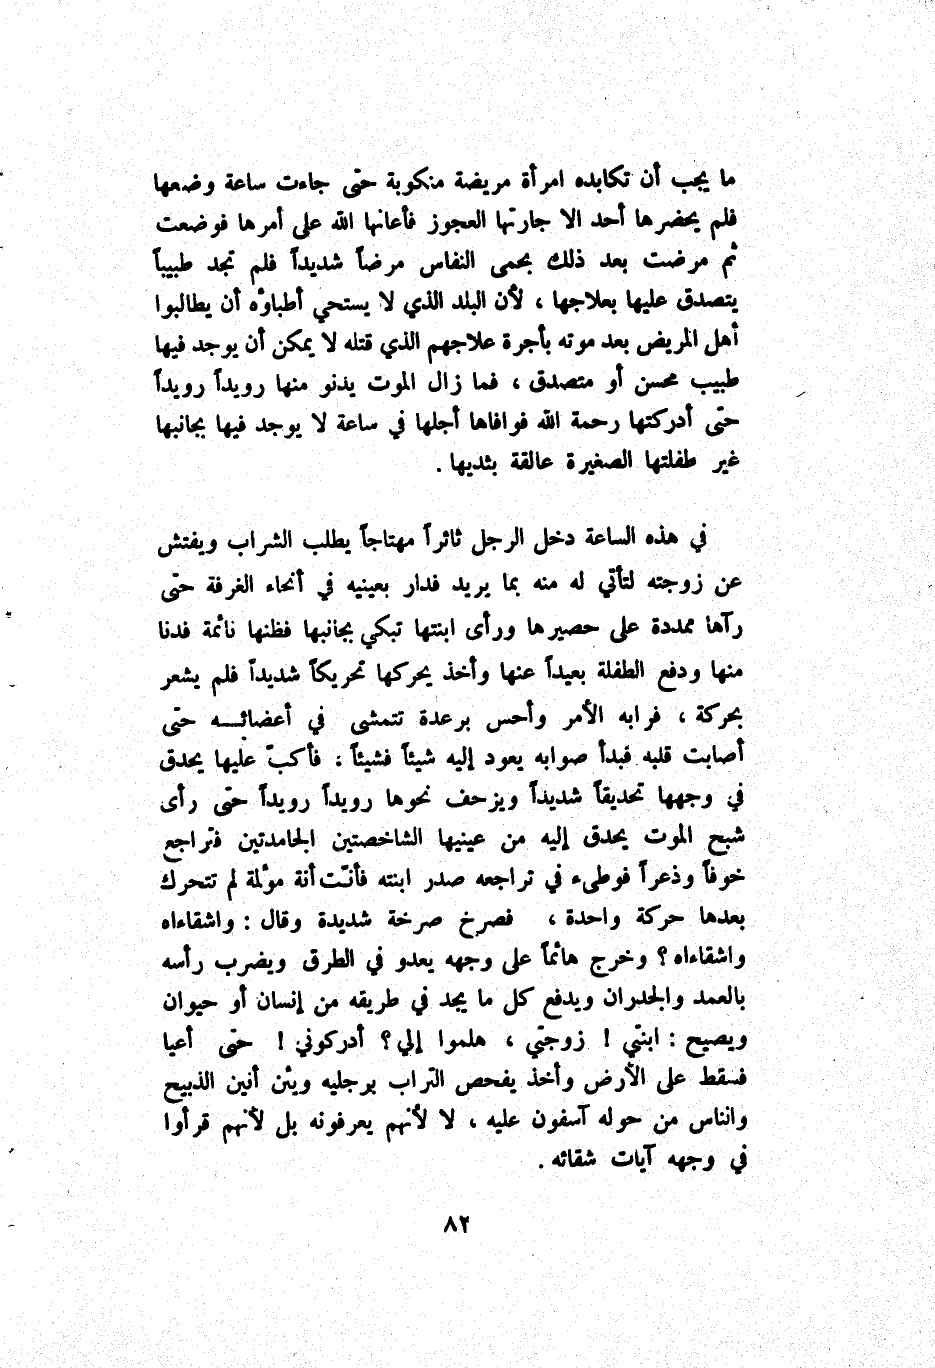 ما يجب أن تكابده امرأة مريضة منكوبة حتى جاءت ساعة وضعها
فلم يحضرها أحد الا جارتها العجوز فأعانها الله على أمرها فوضعت
ثم مرضت بعد ذلك بحمى النفاس مرضاً شديداً فلم تجد طبيباً
يتصدق عليها بعلاجها ، لأن البلد الذي لا يستحي أطباؤه أن يطالبوا
أهل المريض بعد موته بأجرة علاجهم الذي قتله لا يمكن أن يوجد فيها
طبيب محسن أو متصدق ، فما زال الموت يدنو منها رويداً رويداً
حتى أدركتها رحمة الله فوافاها أجلها في ساعة لا يوجد فيها بجانبها
غير طفلتها الصغيرة عالقة بثديها .
في هذه الساعة دخل الرجل ثائراً مهتاجاً يطلب الشراب ويفتش
عن زوجته لتأتي له منه بما يريد فدار بعينيه في أنحاء الغرفة حتى
رآها ممددة على حصيرها ورأى ابنتها تبكي بجانبها فظنها نائمة فدنا
منها ودفع الطفلة بعيداً عنها وأخذ يحركها تحريكاً شديداً فلم يشعر
بحركة ، فرابه الأمر وأحس برعدة تتمشى في أعضائـــه حتى
أصابت قلبه فبدأ صوابه يعود إليه شيئاً فشيئاً : فأكبّ عليها يحدق
في وجهها تحديقاً شديداً ويزحف نحوها رويداً رويداً حتى رأى
شبح الموت يحدق إليه من عينيها الشاخصتين الجامدتين فتراجع
خوفاً وذعراً فوطىء في تراجعه صدر ابنته فأنّت أنة مؤلمة لم تتحرك
بعدها حركة واحدة ، فصرخ صرخة شديدة وقال : واشقاءاه
واشقاءاه ؟ وخرج هائماً على وجهه يعدو في الطرق ويضرب رأسه
بالعمد والجدران ويدفع كل ما يجد في طريقه من إنسان أو حيوان
ويصيح : ابنتي ! زوجتي ، هلموا إلي ؟ أدركوني ! حتى أعيا
فسقط على الأرض وأخذ يفحص التراب برجليه ويئن أنين الذبيح
والناس من حوله آسفون عليه ، لا لأنهم يعرفونه بل لأنهم قرأوا
في وجهه آيات شقائه .
٨٢